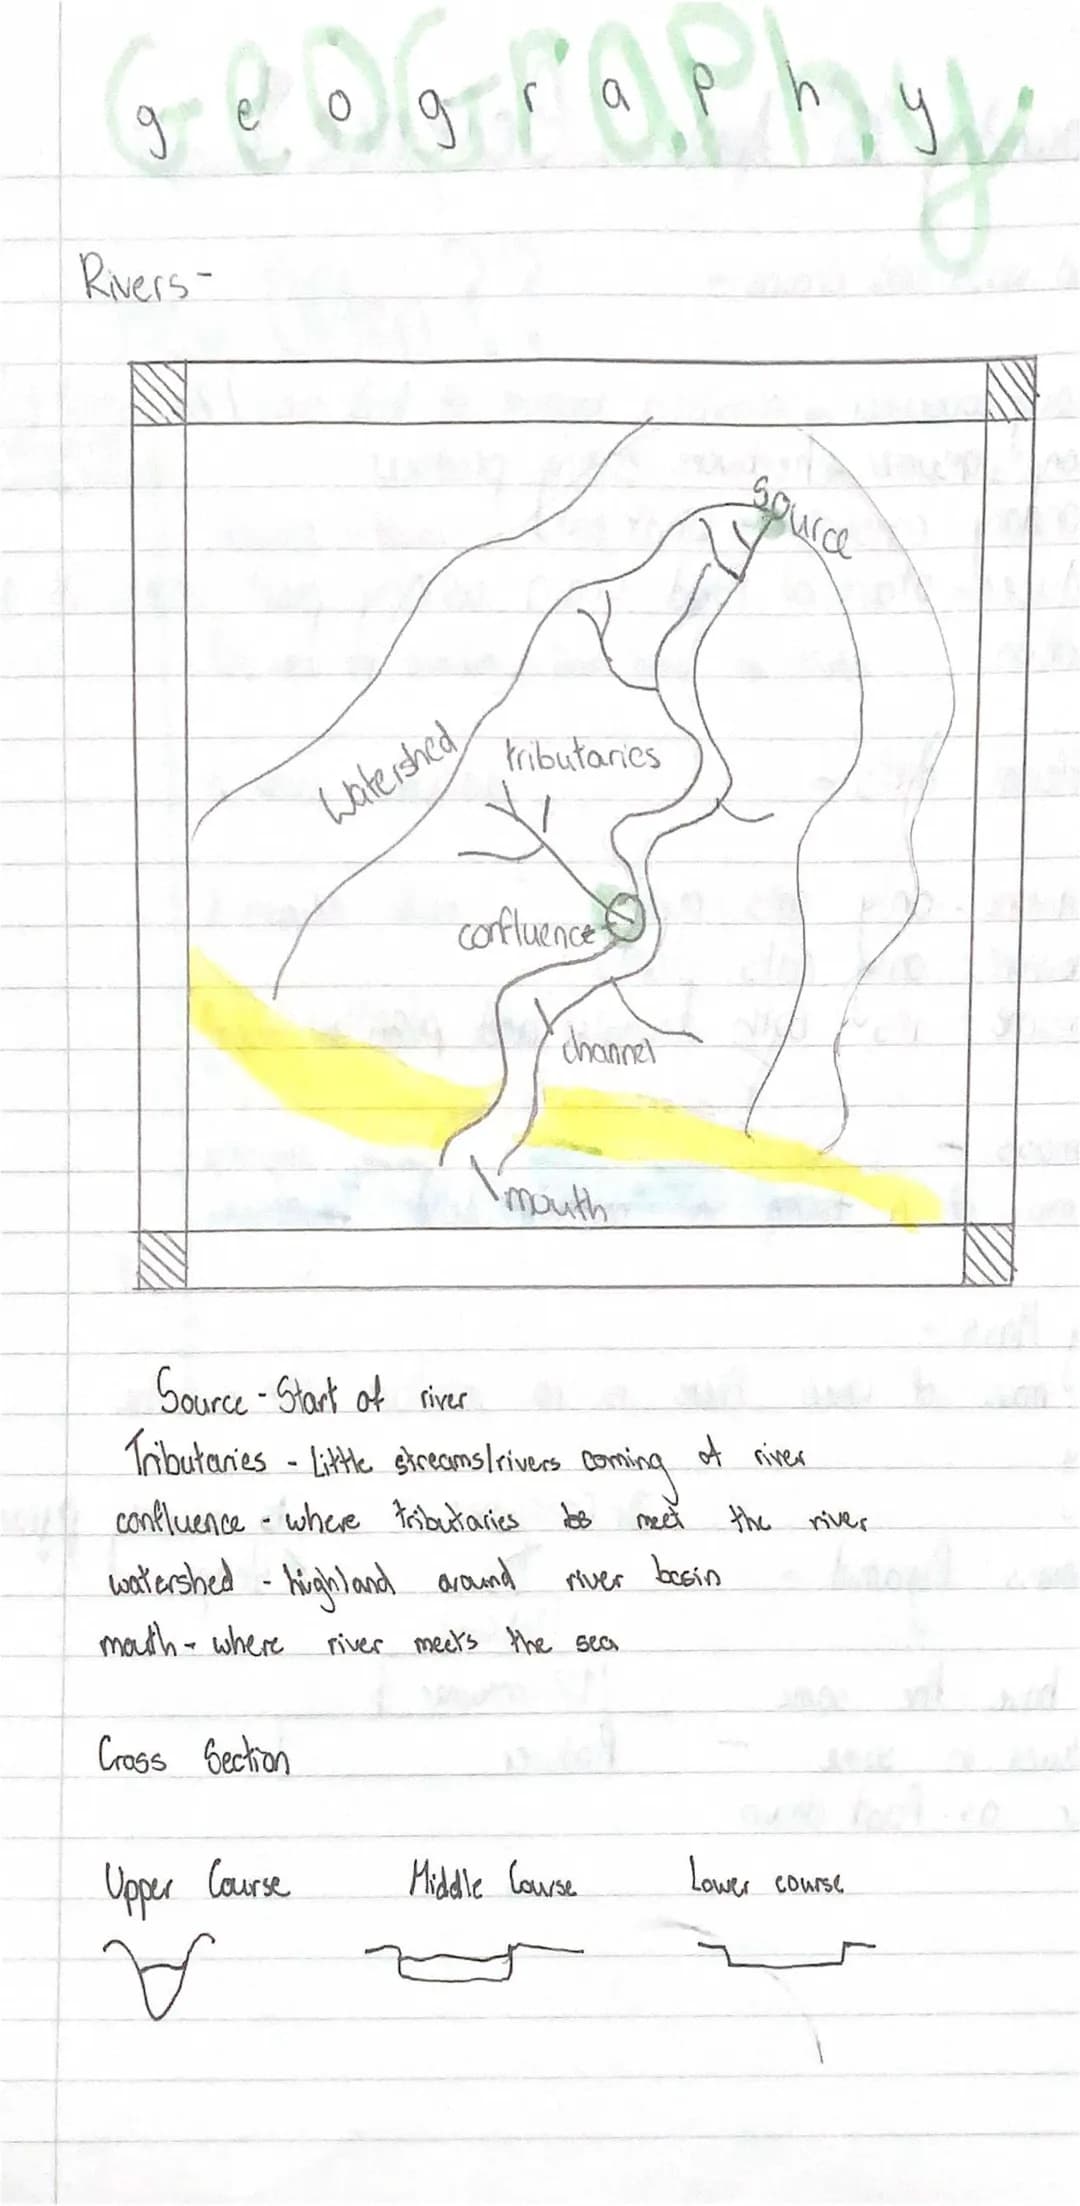 geography
Rivers-
Source
Watershed
tributaries
confluence
channel
mouth
Source - Start of river
Tributaries - Little streams/rivers coming of river
confluence - where tributaries meet the river
watershed - highland around river basin
mouth - where river meets the sea
Cross Section
Upper Course Middle Course Lower course